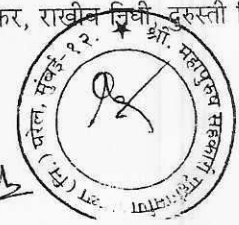 कर, राखीव निधी, दुरुस्ती
★ श्री. महापुरुष सहकारी गृहनिर्माण (नि.) परेल, मुंबई-१२.